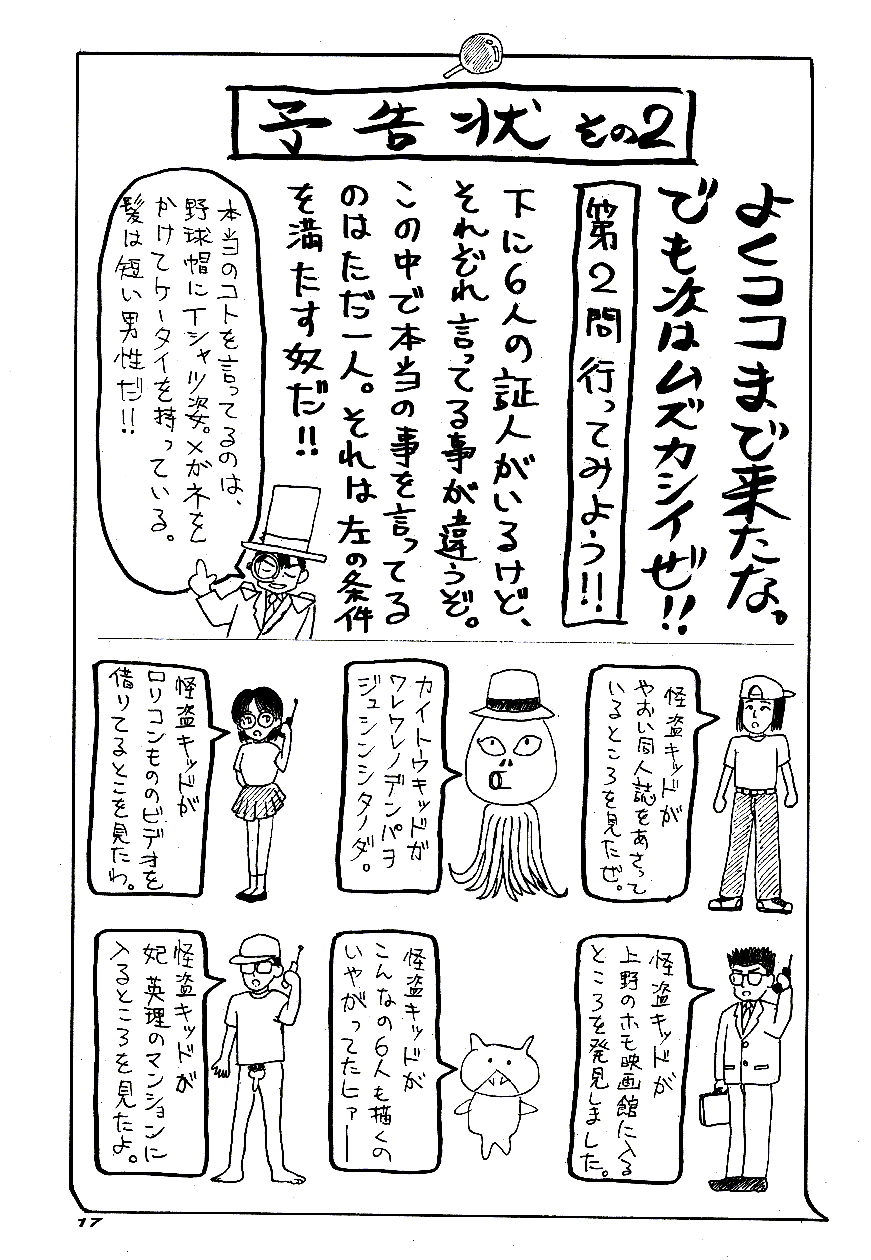 予告状 その2
よくココまで来たな。
でも次はムズカシイぜ!!
第2問 行ってみよう!!
下に6人の証人がいるけど、
それぞれ言ってる事が違うぞ。
この中で本当の事を言ってる
のはただ一人。それは左の条件
を満たす奴だ!!
本当のコトを言ってるのは、
野球帽にTシャツ姿。メガネを
かけてケータイを持っている。
髪は短い男性だ!!
怪盗キッドが
やおい同人誌をあさって
いるところを見たぜ。
カイトウキッドガ
ワレワレノデンパヲ
ジュシンシタノダ。
怪盗キッドが
ロリコンもののビデオを
借りてるとこを見たわ。
怪盗キッドが
上野のホモ映画館に入る
ところを発見しました。
怪盗キッドが
こんなの6人も描くの
いやがってたヒァー
怪盗キッドが
妃英理のマンションに
入るところを見たよ。
17